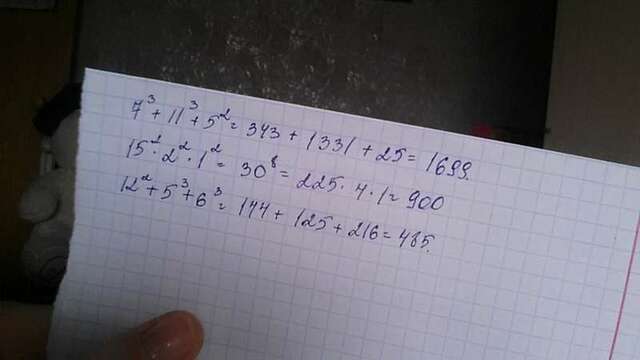 7³ + 11³ + 5² = 343 + 1331 + 25 = 1699.
15² · 2² · 1² = 30⁸ = 225 · 4 · 1 = 900
12² + 5³ + 6³ = 144 + 125 + 216 = 485.